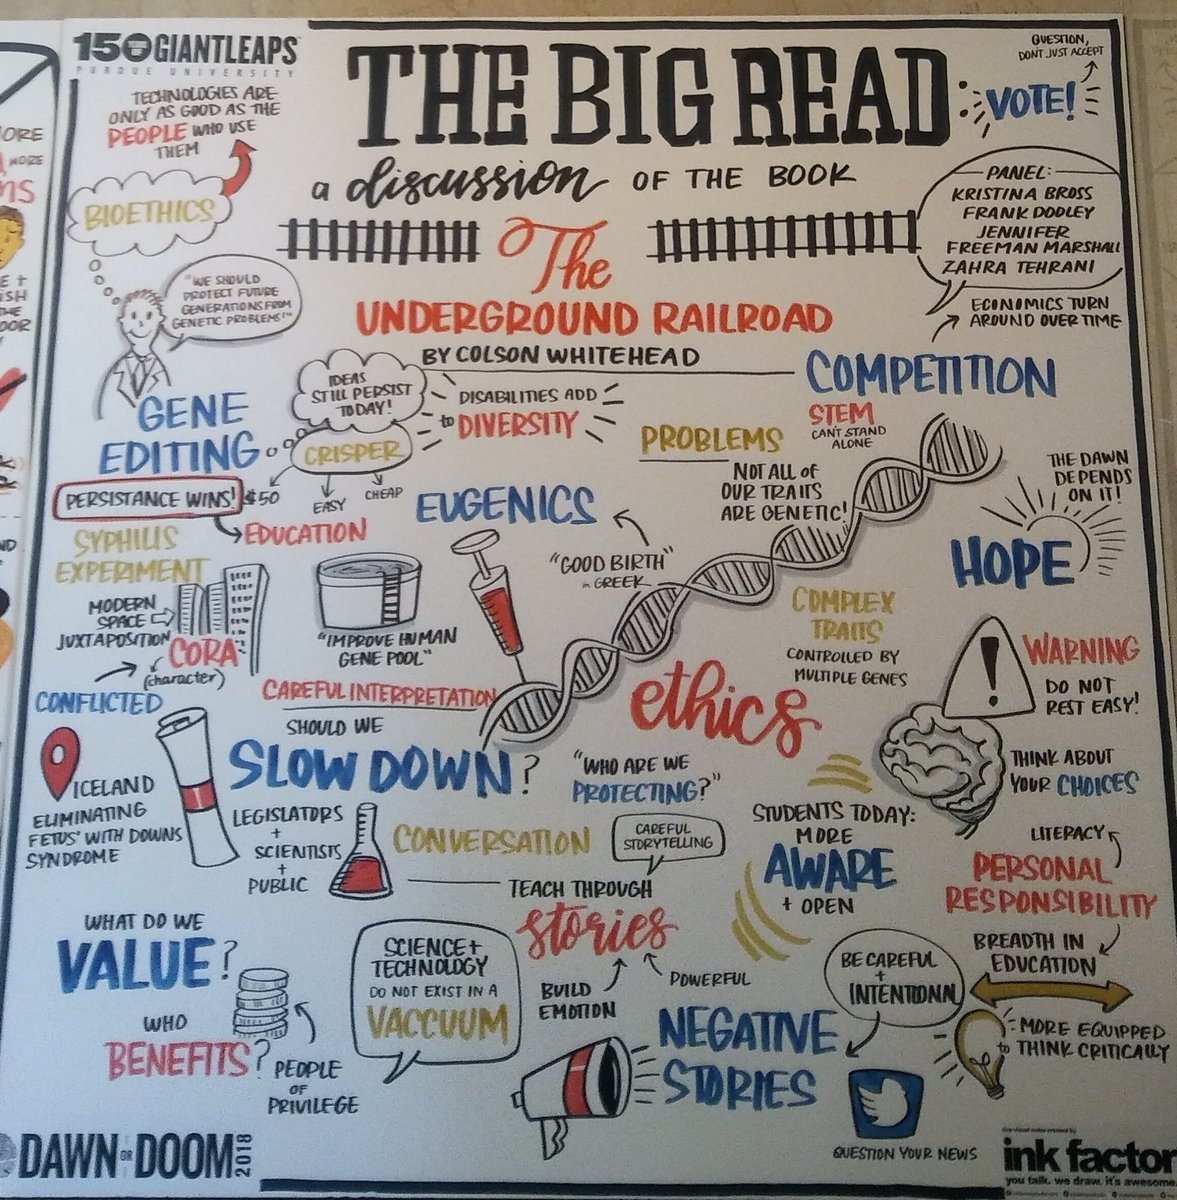 150 GIANTLEAPS
PURDUE UNIVERSITY
THE BIG READ
a discussion OF THE BOOK
The
UNDERGROUND RAILROAD
BY COLSON WHITEHEAD
QUESTION,
DON'T JUST ACCEPT
VOTE!
PANEL:
KRISTINA BROSS
FRANK DOOLEY
JENNIFER
FREEMAN MARSHALL
ZAHRA TEHRANI
TECHNOLOGIES ARE
ONLY AS GOOD AS THE
PEOPLE WHO USE
THEM
BIOETHICS
"WE SHOULD
PROTECT FUTURE
GENERATIONS FROM
GENETIC PROBLEMS!"
GENE
EDITING
IDEAS
STILL PERSIST
TODAY!
CRISPER
$50
EASY
CHEAP
DISABILITIES ADD
to DIVERSITY
ECONOMICS TURN
AROUND OVER TIME
COMPETITION
STEM
CAN'T STAND
ALONE
PROBLEMS
NOT ALL OF
OUR TRAITS
ARE GENETIC!
THE DAWN
DEPENDS
ON IT!
HOPE
PERSISTANCE WINS!
EDUCATION
SYPHILIS
EXPERIMENT
MODERN
SPACE
JUXTAPOSITION
CORA
(character)
CONFLICTED
EUGENICS
"GOOD BIRTH"
in GREEK
"IMPROVE HUMAN
GENE POOL"
CAREFUL INTERPRETATION
COMPLEX
TRAITS
CONTROLLED BY
MULTIPLE GENES
ethics
WARNING
DO NOT
REST EASY!
THINK ABOUT
YOUR CHOICES
SHOULD WE
SLOW DOWN?
"WHO ARE WE
PROTECTING?"
ICELAND
ELIMINATING
FETUS' WITH DOWNS
SYNDROME
LEGISLATORS
+
SCIENTISTS
+
PUBLIC
CONVERSATION
CAREFUL
STORYTELLING
TEACH THROUGH
stories
BUILD
EMOTION
POWERFUL
STUDENTS TODAY:
MORE
AWARE
+ OPEN
LITERACY
PERSONAL
RESPONSIBILITY
BREADTH IN
EDUCATION
MORE EQUIPPED
to THINK CRITICALLY
WHAT DO WE
VALUE?
WHO
BENEFITS?
PEOPLE
OF
PRIVILEGE
SCIENCE +
TECHNOLOGY
DO NOT EXIST IN A
VACCUUM
BE CAREFUL
+
INTENTIONAL
NEGATIVE
STORIES
QUESTION YOUR NEWS
DAWN OR DOOM 2018
ink factor
you talk. we draw. it's awesome